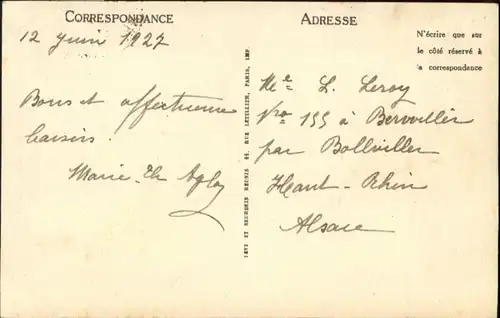 CORRESPONDANCE
12 juin 1927
Bons et affectueux
baisers.
Marie-Th
ADRESSE
N'écrire que sur
le côté réservé à
la correspondance
LEVY ET NEURDEIN RÉUNIS 44, RUE LETELLIER, PARIS, IMP.
Mle L. Leroy
Nro 155 à Berrwiller
par Bollwiller
Haut-Rhin
Alsace